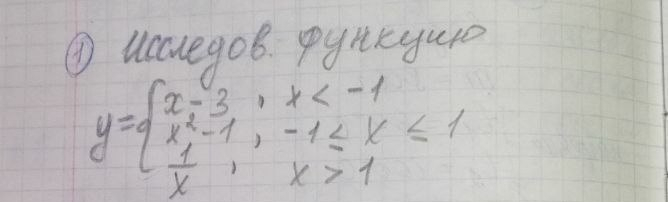 ① Исследов. функцию
y = { x - 3 , x < -1
x² - 1 , -1 ≤ x ≤ 1
1/x , x > 1